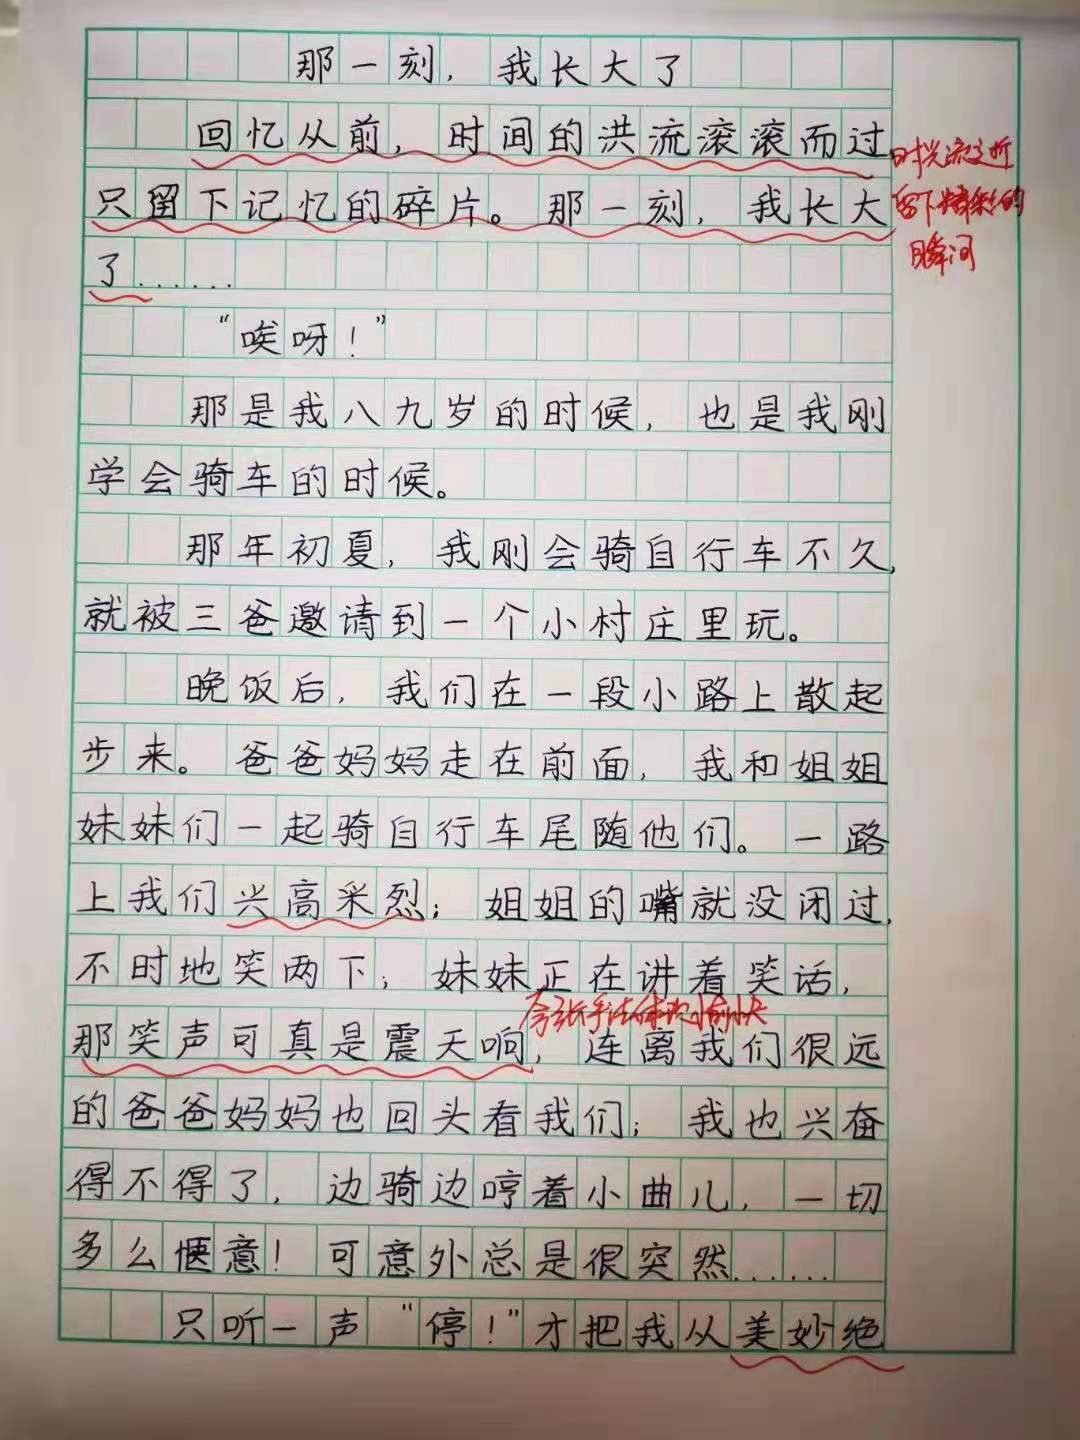 那一刻，我长大了
回忆从前，时间的洪流滚滚而过
只留下记忆的碎片。那一刻，我长大
了……
“唉呀！”
那是我八九岁的时候，也是我刚
学会骑车的时候。
那年初夏，我刚会骑自行车不久，
就被三爸邀请到一个小村庄里玩。
晚饭后，我们在一段小路上散起
步来。爸爸妈妈走在前面，我和姐姐
妹妹们一起骑自行车尾随他们。一路
上我们兴高采烈；姐姐的嘴就没闭过，
不时地笑两下；妹妹正在讲着笑话，
那笑声可真是震天响，连离我们很远
的爸爸妈妈也回头看我们；我也兴奋
得不得了，边骑边哼着小曲儿，一切
多么惬意！可意外总是很突然……
只听一声“停！”才把我从美妙绝
时光流逝
留下精彩的
瞬间
夸张手法体现愉快